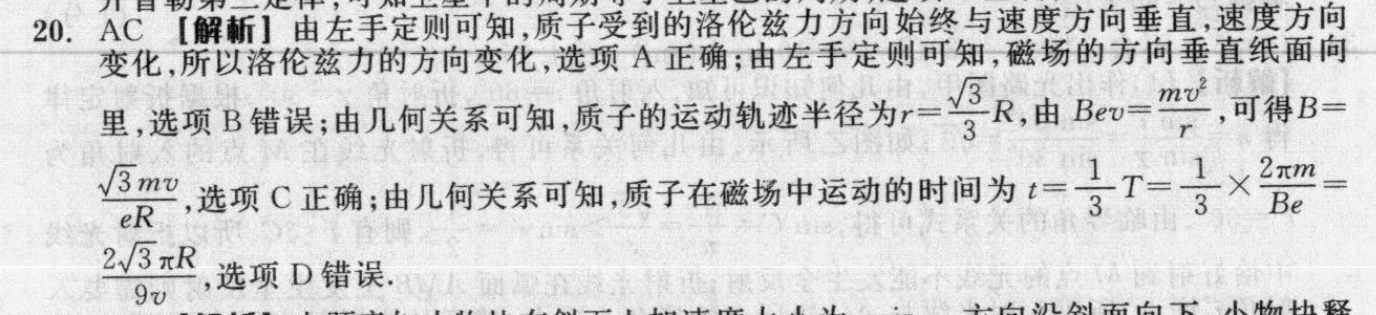 20. AC 【解析】由左手定则可知,质子受到的洛伦兹力方向始终与速度方向垂直,速度方向
变化,所以洛伦兹力的方向变化,选项 A 正确;由左手定则可知,磁场的方向垂直纸面向
里,选项 B 错误;由几何关系可知,质子的运动轨迹半径为 r=\frac{\sqrt{3}}{3}R,由 Bev=\frac{mv^2}{r},可得 B=
\frac{\sqrt{3}mv}{eR},选项 C 正确;由几何关系可知,质子在磁场中运动的时间为 t=\frac{1}{3}T=\frac{1}{3}×\frac{2πm}{Be}=
\frac{2\sqrt{3}πR}{9v},选项 D 错误.
方向沿斜面向下,小物块释